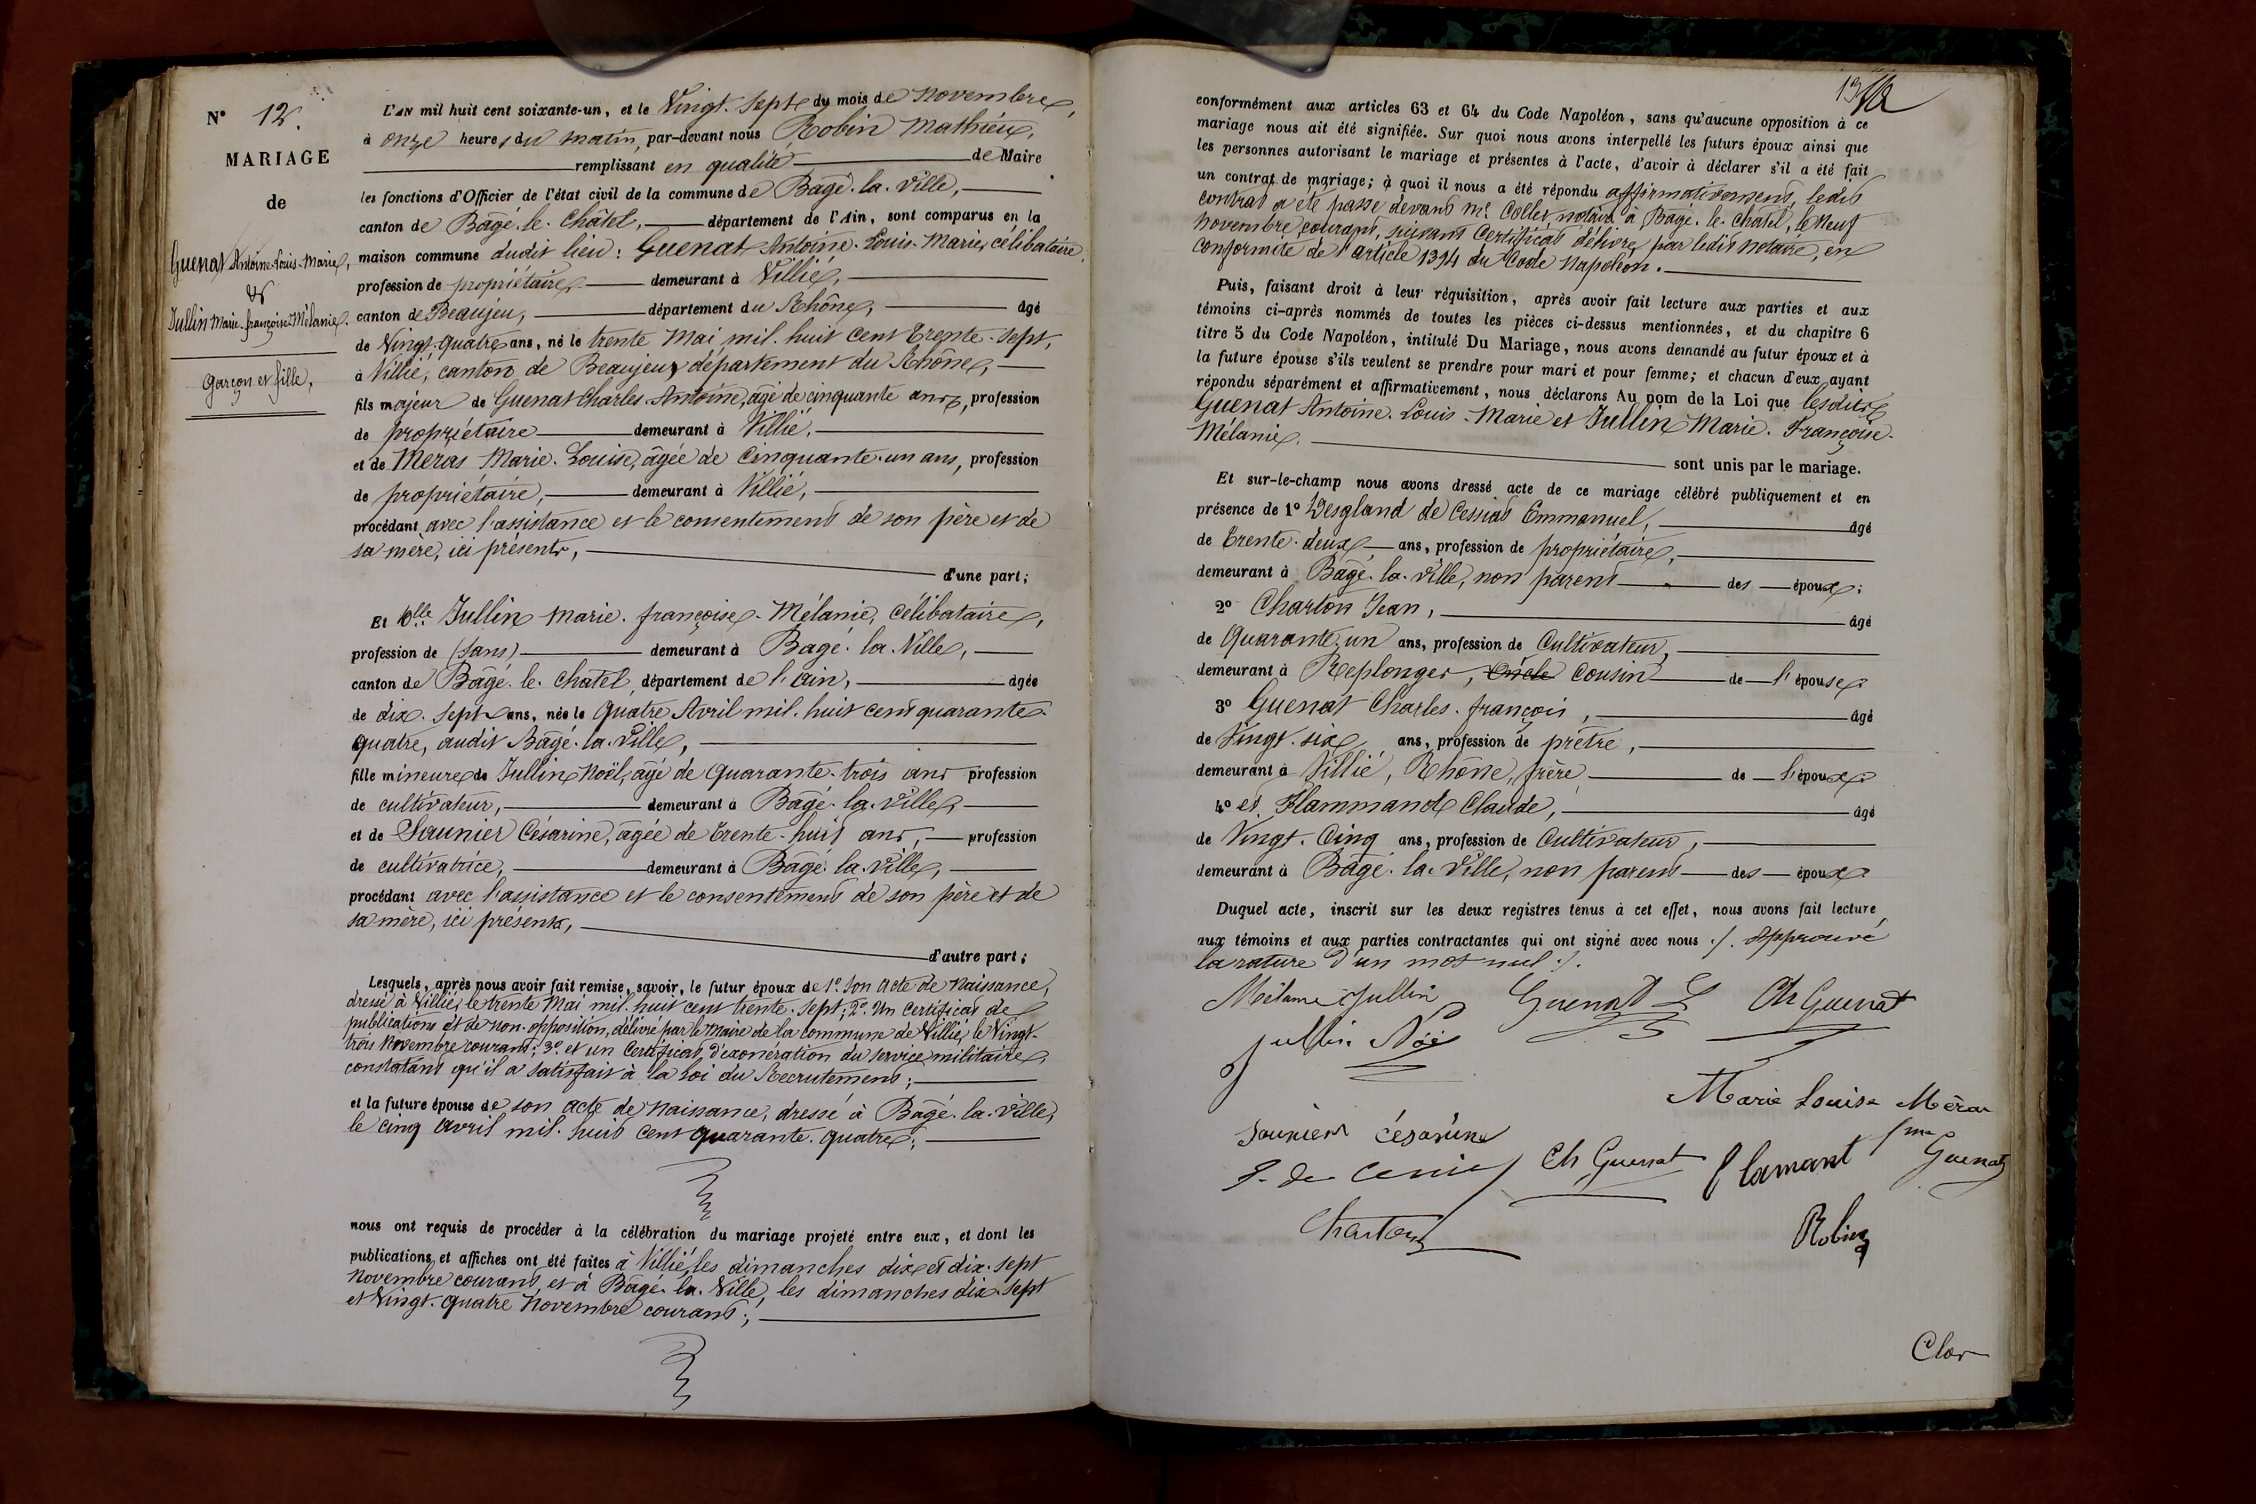 N° 12.
MARIAGE
de
Guenat Antoine-Louis-Marie,
&
Jullin Marie-françoise-Mélanie.
Garçon et fille,
L'AN mil huit cent soixante-un, et le Vingt-Sept du mois de Novembre,
à onze heures du matin, par-devant nous Robin Mathieu,
remplissant en qualité de Maire
les fonctions d'Officier de l'état civil de la commune de Bâgé-la-Ville,
canton de Bâgé-le-Châtel, département de l'Ain, sont comparus en la
maison commune dudit lieu: Guenat Antoine-Louis-Marie, célibataire,
profession de propriétaire demeurant à Villié,
canton de Beaujeu, département du Rhône, âgé
de Vingt-quatre ans, né le trente Mai mil-huit cent trente-sept,
à Villié, canton de Beaujeu, département du Rhône,
fils majeur de Guenat Charles-Antoine, âgé de cinquante ans, profession
de propriétaire demeurant à Villié,
et de Meras Marie-Louise, âgée de Cinquante-un ans, profession
de propriétaire, demeurant à Villié,
procédant avec l'assistance et le consentement de son père et de
sa mère, ici présents,
d'une part;
Et Dlle Jullin Marie-françoise-Mélanie, Célibataire,
profession de (sans) demeurant à Bagé-la-Ville,
canton de Bâgé-le-Chatel, département de l'ain, âgée
de dix-sept ans, née le Quatre Avril mil-huit cent quarante-
quatre, audit Bâgé-la-Ville,
fille mineure de Jullin Noël, âgé de quarante-trois ans profession
de cultivateur, demeurant à Bâgé-la-Ville,
et de Saunier Césarine, âgée de trente-huit ans, profession
de cultivatrice, demeurant à Bâgé-la-Ville,
procédant avec l'assistance et le consentement de son père et de
sa mère, ici présents,
d'autre part;
Lesquels, après nous avoir fait remise, savoir, le futur époux de 1° Son acte de Naissance,
dressé à Villié, le trente Mai mil-huit cent trente-sept; 2° Un Certificat de
publications et de non-opposition, délivré par le Maire de la commune de Villié, le Vingt-
trois Novembre courant; 3° et un Certificat d'exonération du service militaire
constatant qu'il a satisfait à la Loi du Recrutement;
et la future épouse de son acte de Naissance, dressé à Bâgé-la-Ville,
le cinq avril mil-huit cent quarante-quatre;
nous ont requis de procéder à la célébration du mariage projeté entre eux, et dont les
publications et affiches ont été faites à Villié, les dimanches dix et dix-sept
Novembre courant et à Bâgé-la-Ville, les dimanches dix-sept
et Vingt-quatre Novembre courant;
13
conformément aux articles 63 et 64 du Code Napoléon, sans qu'aucune opposition à ce
mariage nous ait été signifiée. Sur quoi nous avons interpellé les futurs époux ainsi que
les personnes autorisant le mariage et présentes à l'acte, d'avoir à déclarer s'il a été fait
un contrat de mariage; à quoi il nous a été répondu affirmativement, ledit
contrat a été passé devant Me Collet, notaire à Bâgé-le-Chatel, le Neuf
Novembre courant, suivant Certificat délivré par ledit Notaire, en
conformité de l'article 1394 du Code Napoléon.
Puis, faisant droit à leur réquisition, après avoir fait lecture aux parties et aux
témoins ci-après nommés de toutes les pièces ci-dessus mentionnées, et du chapitre 6
titre 5 du Code Napoléon, intitulé Du Mariage, nous avons demandé au futur époux et à
la future épouse s'ils veulent se prendre pour mari et pour femme; et chacun d'eux ayant
répondu séparément et affirmativement, nous déclarons Au nom de la Loi que lesdits
Guenat Antoine-Louis-Marie et Jullin Marie-Françoise-
Mélanie,
sont unis par le mariage.
Et sur-le-champ nous avons dressé acte de ce mariage célébré publiquement et en
présence de 1° Desgland de Cessiat Emmanuel, âgé
de trente-deux ans, profession de propriétaire,
demeurant à Bâgé-la-Ville, non parent des époux;
2° Charton Jean, âgé
de Quarante-un ans, profession de Cultivateur,
demeurant à Replonges, Oncle Cousin de l'épouse
3° Guenat Charles-françois, âgé
de Vingt-six ans, profession de prêtre,
demeurant à Villié, Rhône, frère de l'époux
4° et Flammand Claude, âgé
de Vingt-Cinq ans, profession de Cultivateur,
demeurant à Bâgé-la-Ville, non parent des époux
Duquel acte, inscrit sur les deux registres tenus à cet effet, nous avons fait lecture
aux témoins et aux parties contractantes qui ont signé avec nous ./. Approuvé
la rature d'un mot nul ./.
Mélanie Jullin Guenat L Ch Guenat
Jullin Noël
Marie Louise Méras
fme Guenat
Saunier Césarine
Ch Guenat flamant
Charton
Robin
Clos